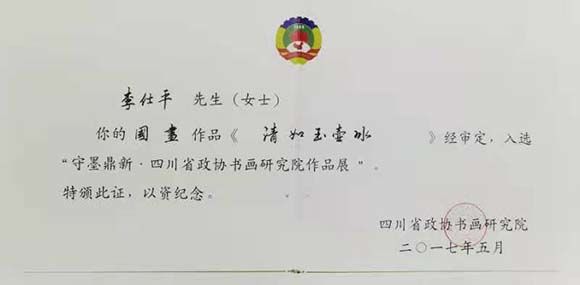 李仕平 先生(女士)
你的 國畫 作品《 清如玉壶冰 》经审定,入选
“守墨鼎新·四川省政协书画研究院作品展”。
特颁此证,以资纪念。
四川省政协书画研究院
二〇一七年五月